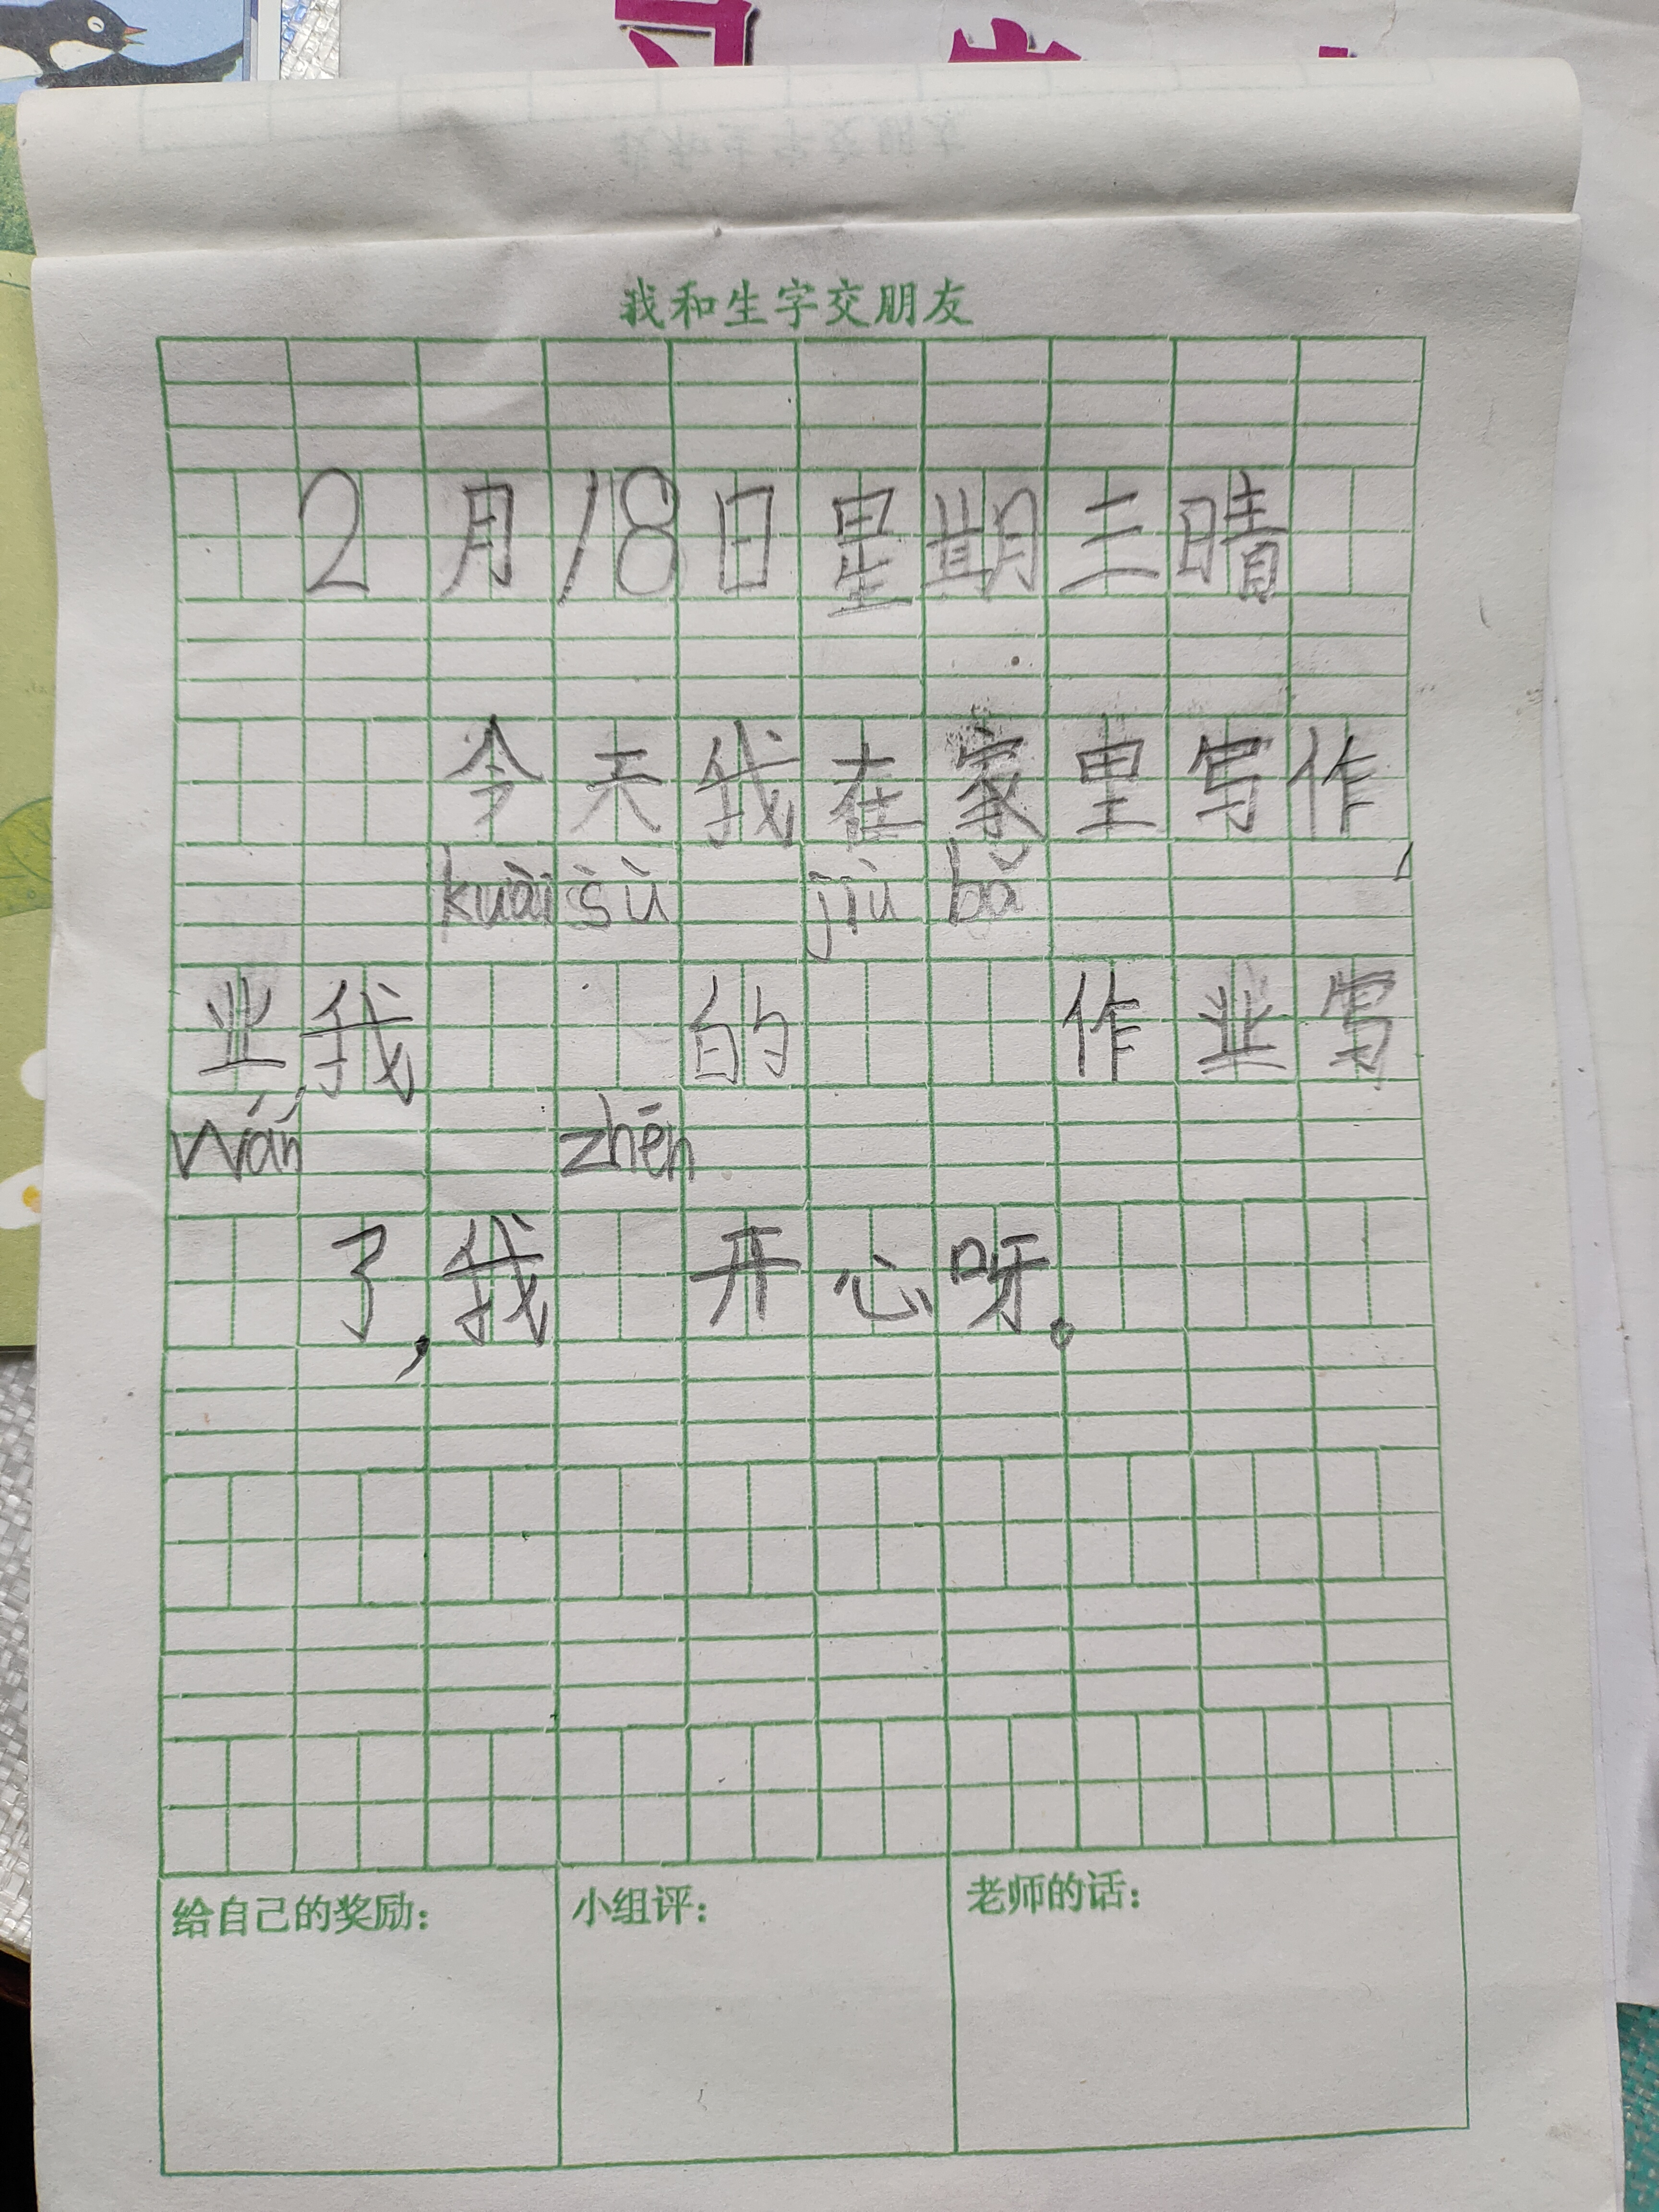 我和生字交朋友
2月18日星期三晴
今天我在家里写作
kuài sù jiù bǎ
业,我 的 作业写
wán zhēn
了,我 开心呀。
给自己的奖励:
小组评:
老师的话: